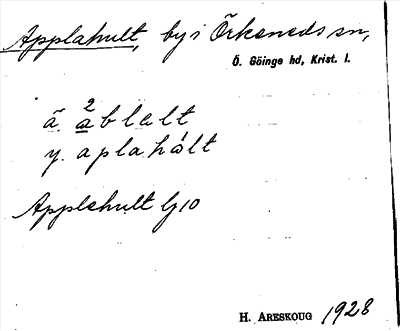 Applahult, by i Örkeneds sn,
Ö. Göinge hd, Krist. l.
ä. ²ablalt
y. aplahált
Applehult Gj10
H. ARESKOUG 1928